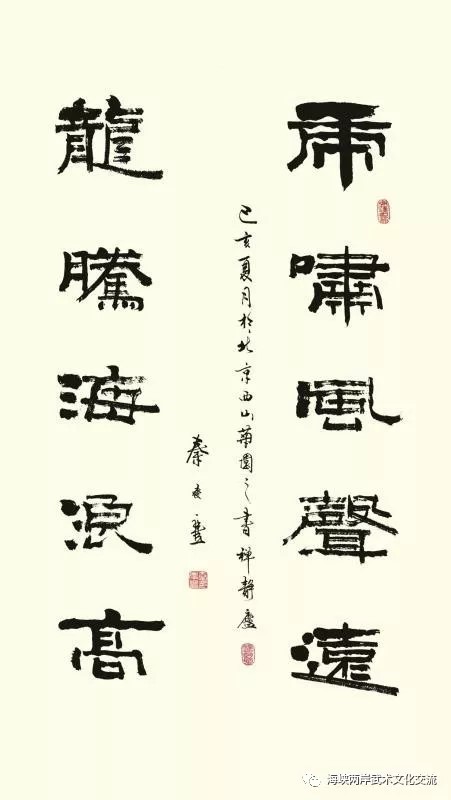 虎嘯風聲遠
己亥夏月於北京西山園之書禅静廬
秦
龍騰海浪高
海峡两岸武术文化交流